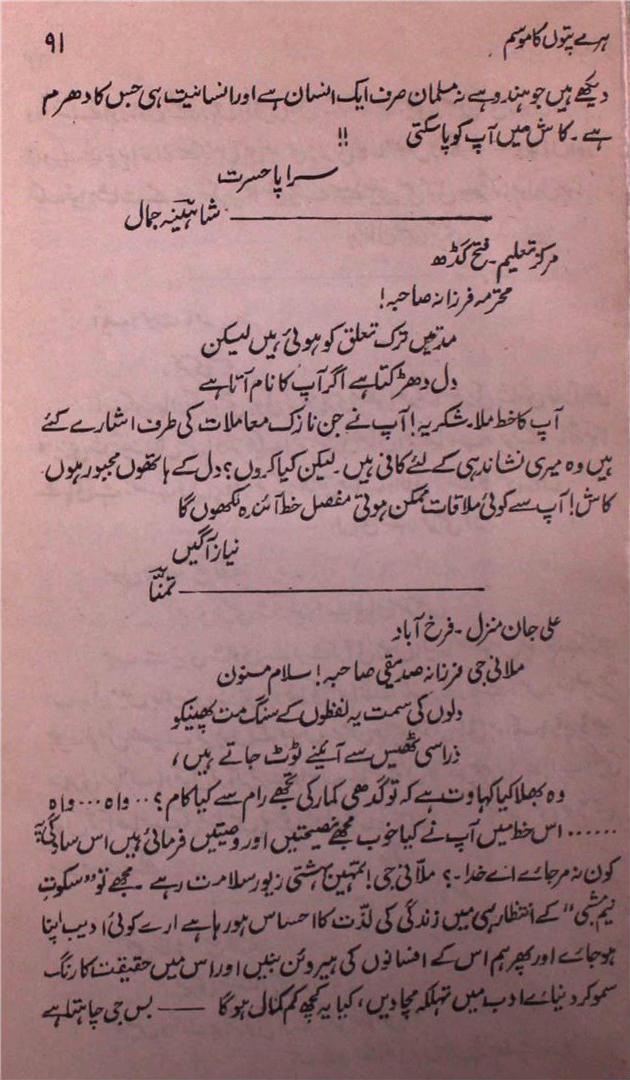 ہرے پتوں کا موسم
۹۱
دیکھے ہیں جو ہندو ہے نہ مسلمان صرف ایک انسان ہے اور انسانیت ہی جس کا دھرم
ہے ۔ کاش میں آپ کو پا سکتی !!
سراپا حسرت
شاہینہ جمال
مرکز تعلیم ۔ فتح گڈھ
محترمہ فرزانہ صاحبہ !
مدتیں ترک تعلق کو ہوئی ہیں لیکن
دل دھڑکتا ہے اگر آپ کا نام آتا ہے
آپ کا خط ملا ۔ شکریہ ! آپ نے جن نازک معاملات کی طرف اشارے کئے
ہیں وہ میری نشاندہی کے لئے کافی ہیں ۔ لیکن کیا کروں ؟ دل کے ہاتھوں مجبور ہوں
کاش ! آپ سے کوئی ملاقات ممکن ہوتی مفصل خط آئندہ لکھوں گا
نیاز آگیں
تمنّا
علی جان منزل ۔ فرخ آباد
ملانی جی فرزانہ صدیقی صاحبہ ! سلام مسنون
دلوں کی سمت یہ لفظوں کے سنگ مت پھینکو
ذرا سی ٹھیس سے آئینے ٹوٹ جاتے ہیں ،
وہ بھلا کیا کہاوت ہے کہ تو گدھی کمار کی تجھے رام سے کیا کام ؟ .. واہ ... واہ
...... اس خط میں آپ نے کیا خوب مجھے نصیحتیں اور وصیتیں فرمائی ہیں اس سادگی پہ
کون نہ مر جائے اے خدا ۔ ؟ ملّانی جی ! تمہیں بہشتی زیور سلامت رہے ۔ مجھے تو "سکوتِ
نیم شبی" کے انتظار ہی میں زندگی کی لذّت کا احساس ہو رہا ہے ارے کوئی ادیب اپنا
ہو جائے اور پھر ہم اس کے افسانوں کی ہیروئن بنیں اور اس میں حقیقت کا رنگ
سمو کر دنیائے ادب میں تہلکہ مچا دیں ، کیا یہ کچھ کم کمال ہوگا —— بس جی چاہتا ہے